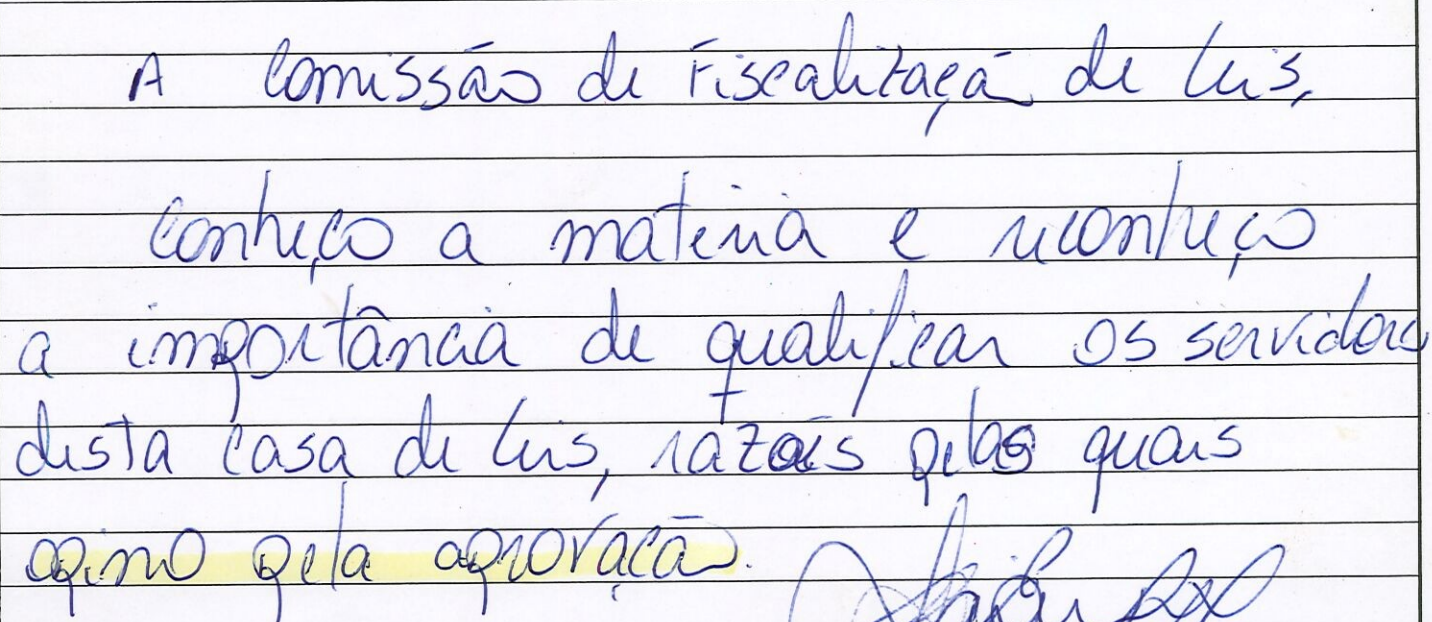 A Comissão de Fiscalização de leis,
conheço a matéria e reconheço
a importância de qualificar os servidores
desta casa de leis, razões pelas quais
opino pela aprovação.